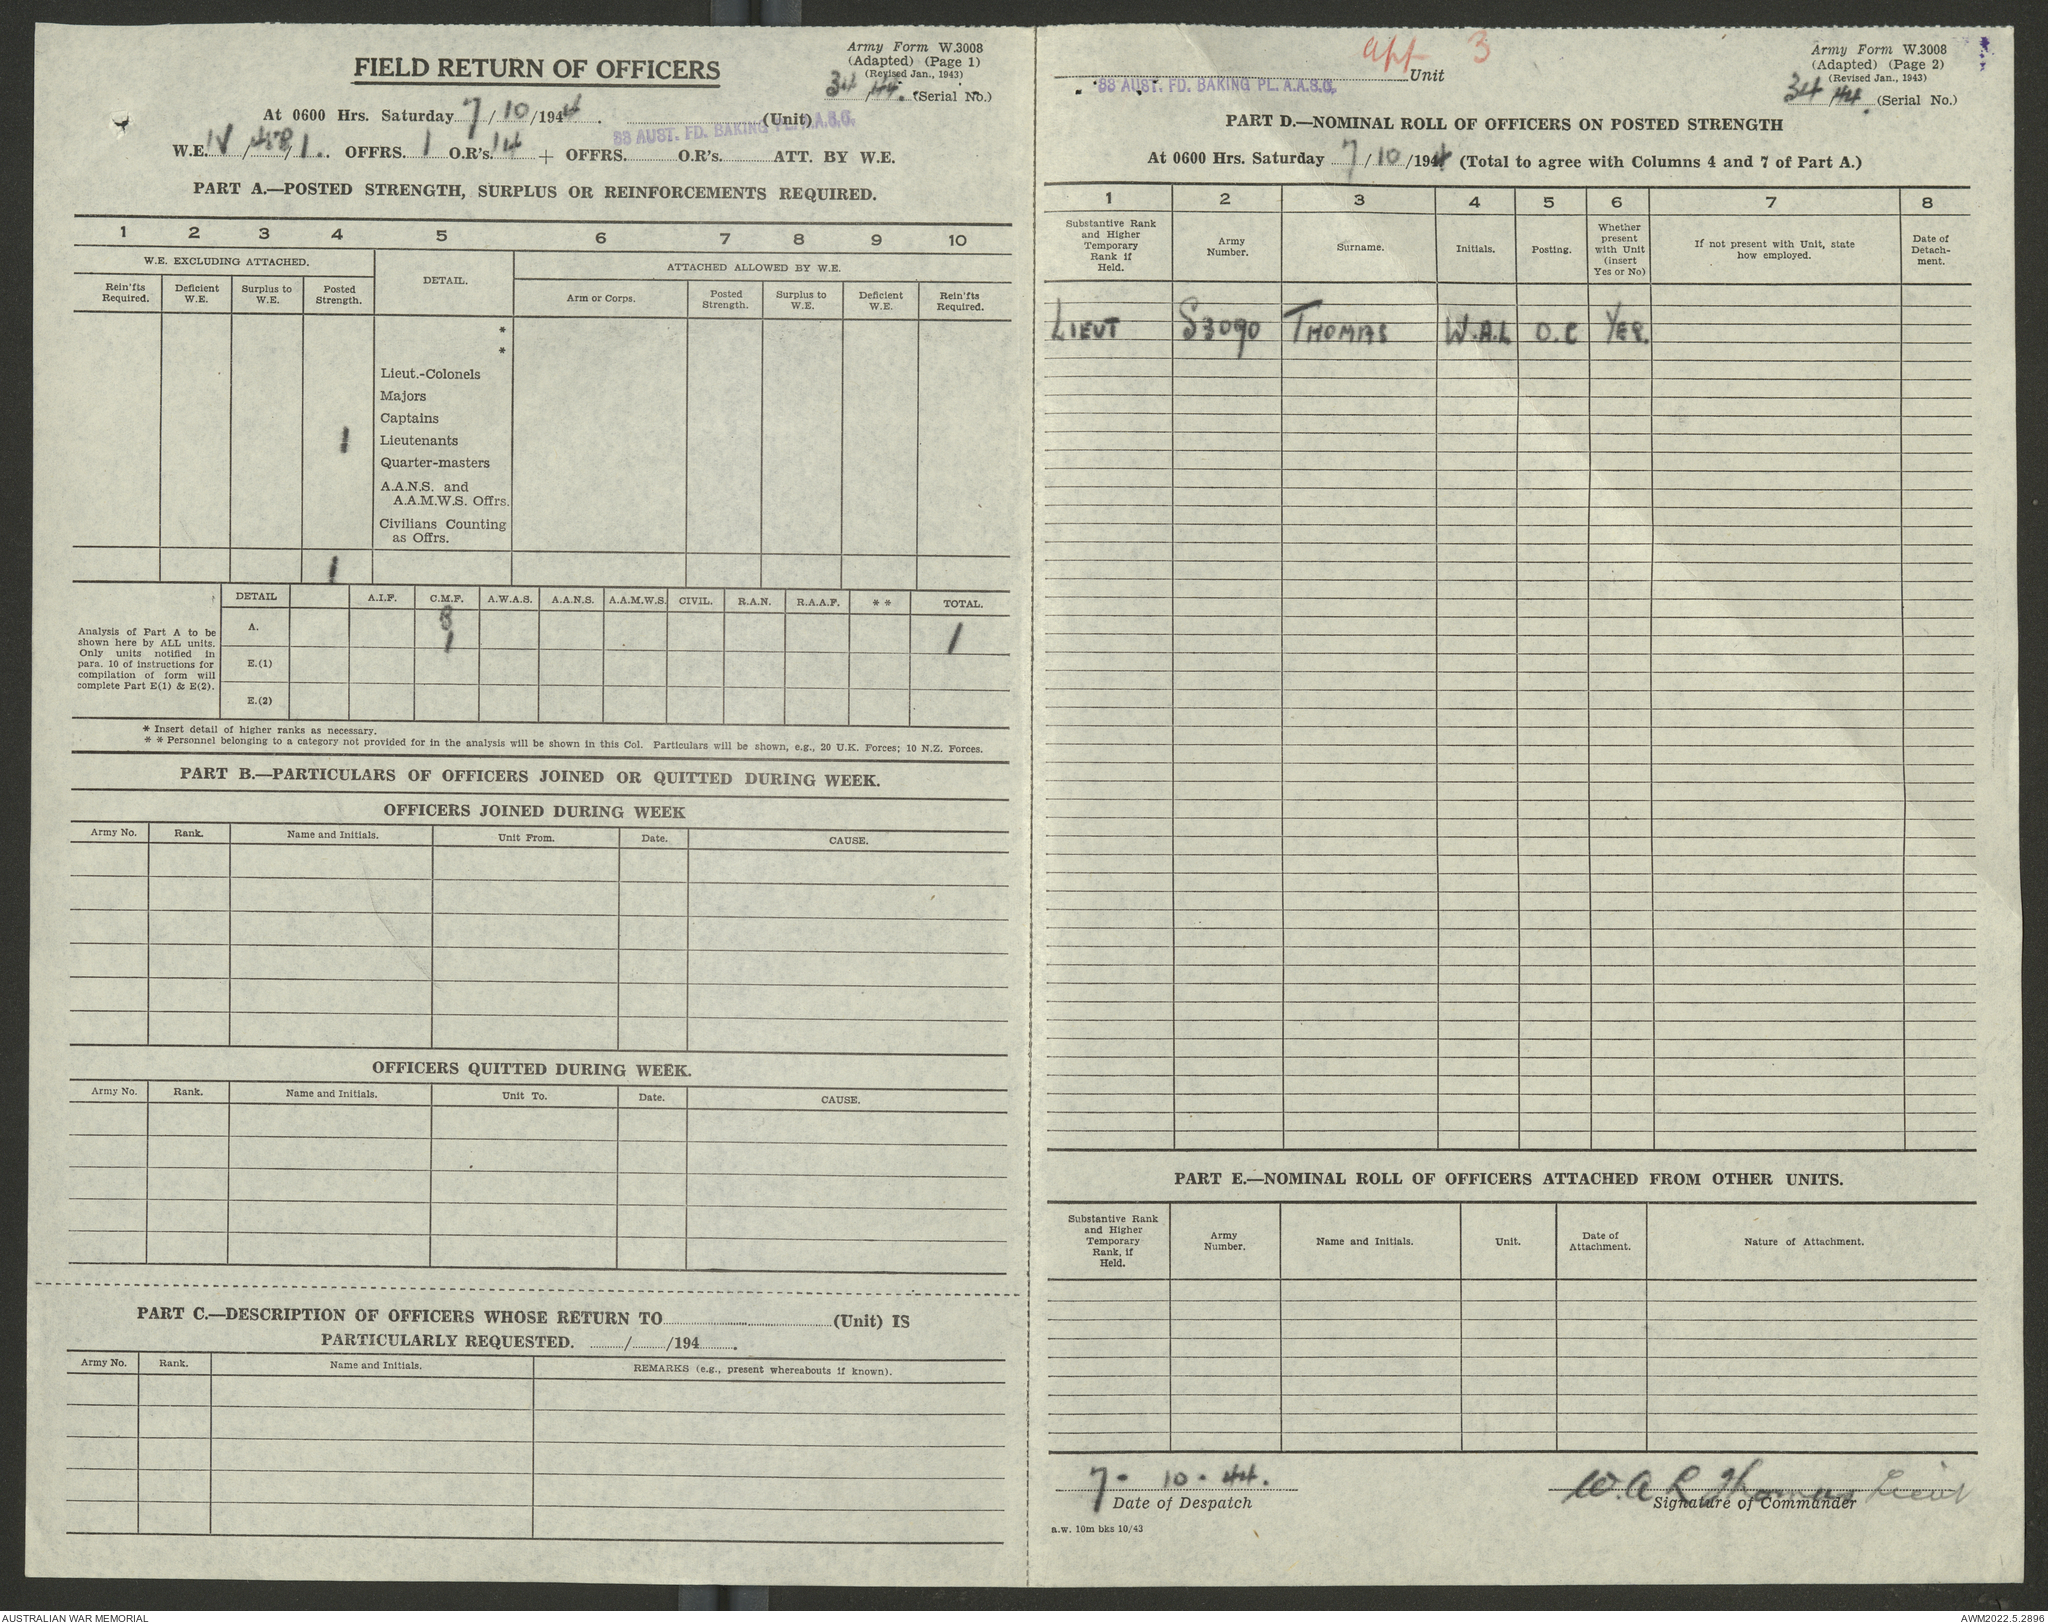 Army Form W.3008
FIELD RETURN OF OFFICERS
(Adapted) (Page 1)
(Revised Jan., 1943)
34/44. (Serial No.)
At 0600 Hrs. Saturday 7/10/1944. (Unit)
88 AUST. FD. BAKING PL. A.A.S.C.
W.E. IV/ /1.. OFFRS. 1 O.R's. 14 + OFFRS. O.R's. ATT. BY W.E.
PART A.—POSTED STRENGTH, SURPLUS OR REINFORCEMENTS REQUIRED.
1 2 3 4 5 6 7 8 9 10
W.E. EXCLUDING ATTACHED. DETAIL. ATTACHED ALLOWED BY W.E.
Rein'fts Required. Deficient W.E. Surplus to W.E. Posted Strength. Arm or Corps. Posted Strength. Surplus to W.E. Deficient W.E. Rein'fts Required.
*
*
Lieut.-Colonels
Majors
Captains
1 Lieutenants
Quarter-masters
A.A.N.S. and
A.A.M.W.S. Offrs.
Civilians Counting
as Offrs.
1
DETAIL A.I.F. C.M.F. A.W.A.S. A.A.N.S. A.A.M.W.S. CIVIL. R.A.N. R.A.A.F. * * TOTAL.
A. 1 1
E.(1)
E.(2)
Analysis of Part A to be
shown here by ALL units.
Only units notified in
para. 10 of instructions for
compilation of form will
complete Part E(1) & E(2).
* Insert detail of higher ranks as necessary.
* * Personnel belonging to a category not provided for in the analysis will be shown in this Col. Particulars will be shown, e.g., 20 U.K. Forces; 10 N.Z. Forces.
PART B.—PARTICULARS OF OFFICERS JOINED OR QUITTED DURING WEEK.
OFFICERS JOINED DURING WEEK
Army No. Rank. Name and Initials. Unit From. Date. CAUSE.
OFFICERS QUITTED DURING WEEK.
Army No. Rank. Name and Initials. Unit To. Date. CAUSE.
PART C.—DESCRIPTION OF OFFICERS WHOSE RETURN TO (Unit) IS
PARTICULARLY REQUESTED. / /194 .
Army No. Rank. Name and Initials. REMARKS (e.g., present whereabouts if known).
app 3
Army Form W.3008
Unit
(Adapted) (Page 2)
88 AUST. FD. BAKING PL. A.A.S.C.
(Revised Jan., 1943)
34/44. (Serial No.)
PART D.—NOMINAL ROLL OF OFFICERS ON POSTED STRENGTH
At 0600 Hrs. Saturday 7/10/1944 (Total to agree with Columns 4 and 7 of Part A.)
1 2 3 4 5 6 7 8
Substantive Rank and Higher Temporary Rank if Held. Army Number. Surname. Initials. Posting. Whether present with Unit (insert Yes or No) If not present with Unit, state how employed. Date of Detach- ment.
LIEUT S3090 THOMAS W.A.L O.C YES.
PART E.—NOMINAL ROLL OF OFFICERS ATTACHED FROM OTHER UNITS.
Substantive Rank and Higher Temporary Rank, if Held. Army Number. Name and Initials. Unit. Date of Attachment. Nature of Attachment.
7 - 10 - 44. W.A L Thomas Lieut
Date of Despatch Signature of Commander
a.w. 10m bks 10/43
AUSTRALIAN WAR MEMORIAL AWM2022.5.2896